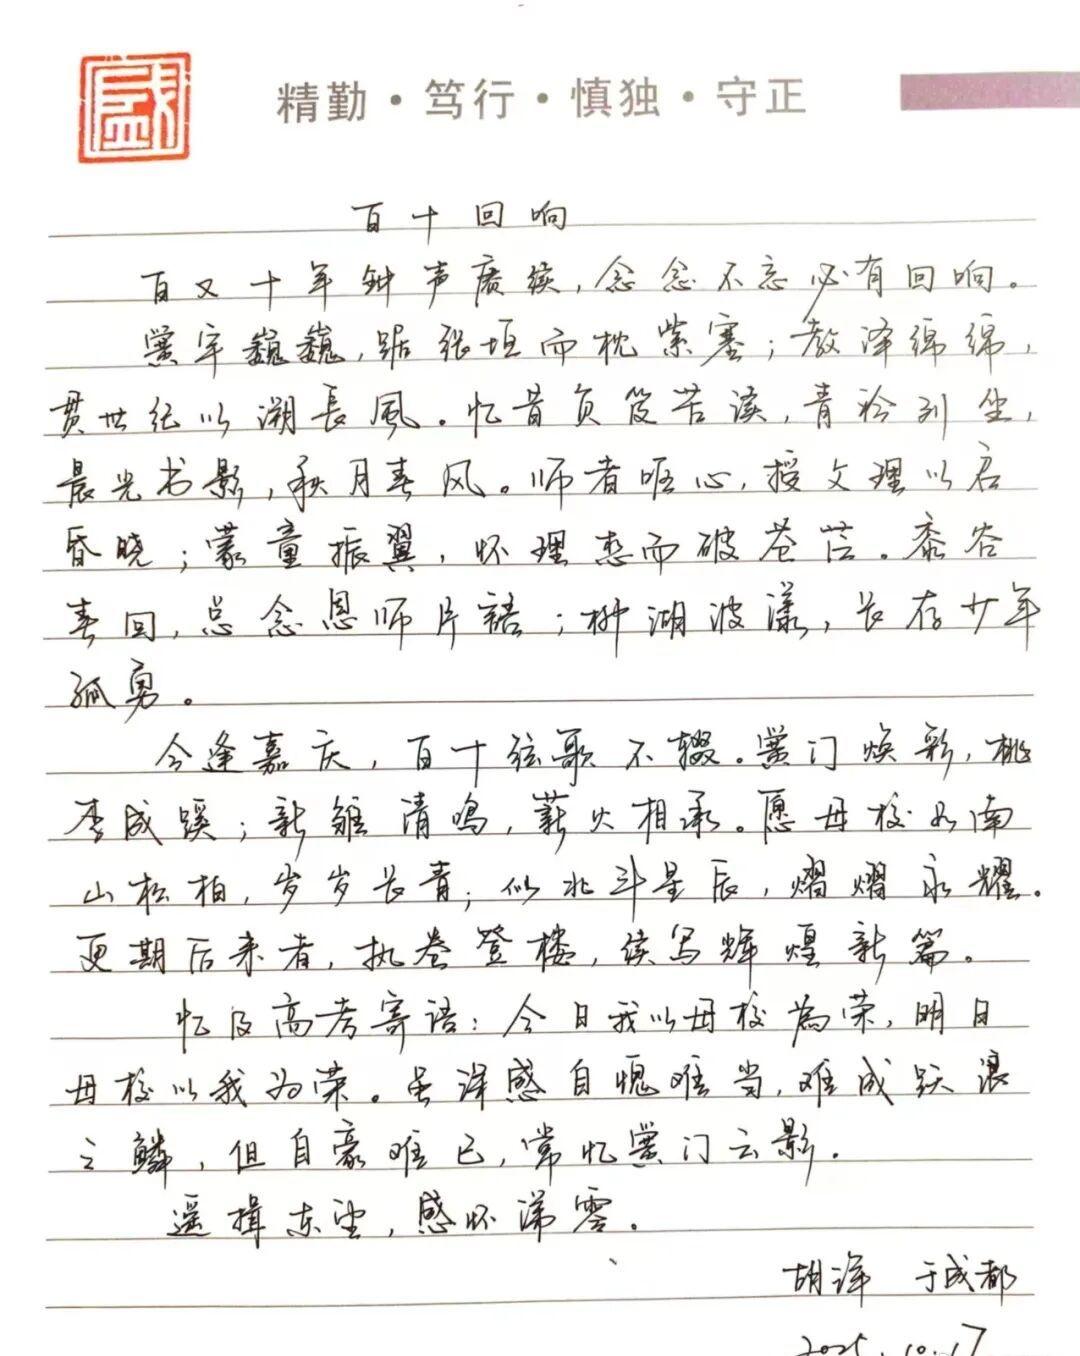 盛
精勤·笃行·慎独·守正
百十回响
百又十年钟声赓续，念念不忘必有回响。
黉宇巍巍，踞张垣而枕紫塞；教泽绵绵，
贯世纪以溯長風。忆昔负笈苦读，青衿列坐，
晨光书影，秋月春风。师者匠心，授文理以启
昏晓；蒙童振翼，怀理想而破苍茫。黍谷
春回，总念恩师片语；柳湖波漾，长存少年
孤勇。
今逢嘉庆，百十弦歌不辍。黉门焕彩，桃
李成蹊；新雏清鸣，薪火相承。愿母校如南
山松柏，岁岁长青；似北斗星辰，熠熠永耀。
更期后来者，执卷登楼，续写辉煌新篇。
忆及高考寄语：今日我以母校為荣，明日
母校以我为荣。虽深感自愧难当，难成跃浪
之鳞，但自豪难已，常忆黉门云影。
遥揖东望，感怀涕零。
胡洋 于成都
2025.10.17